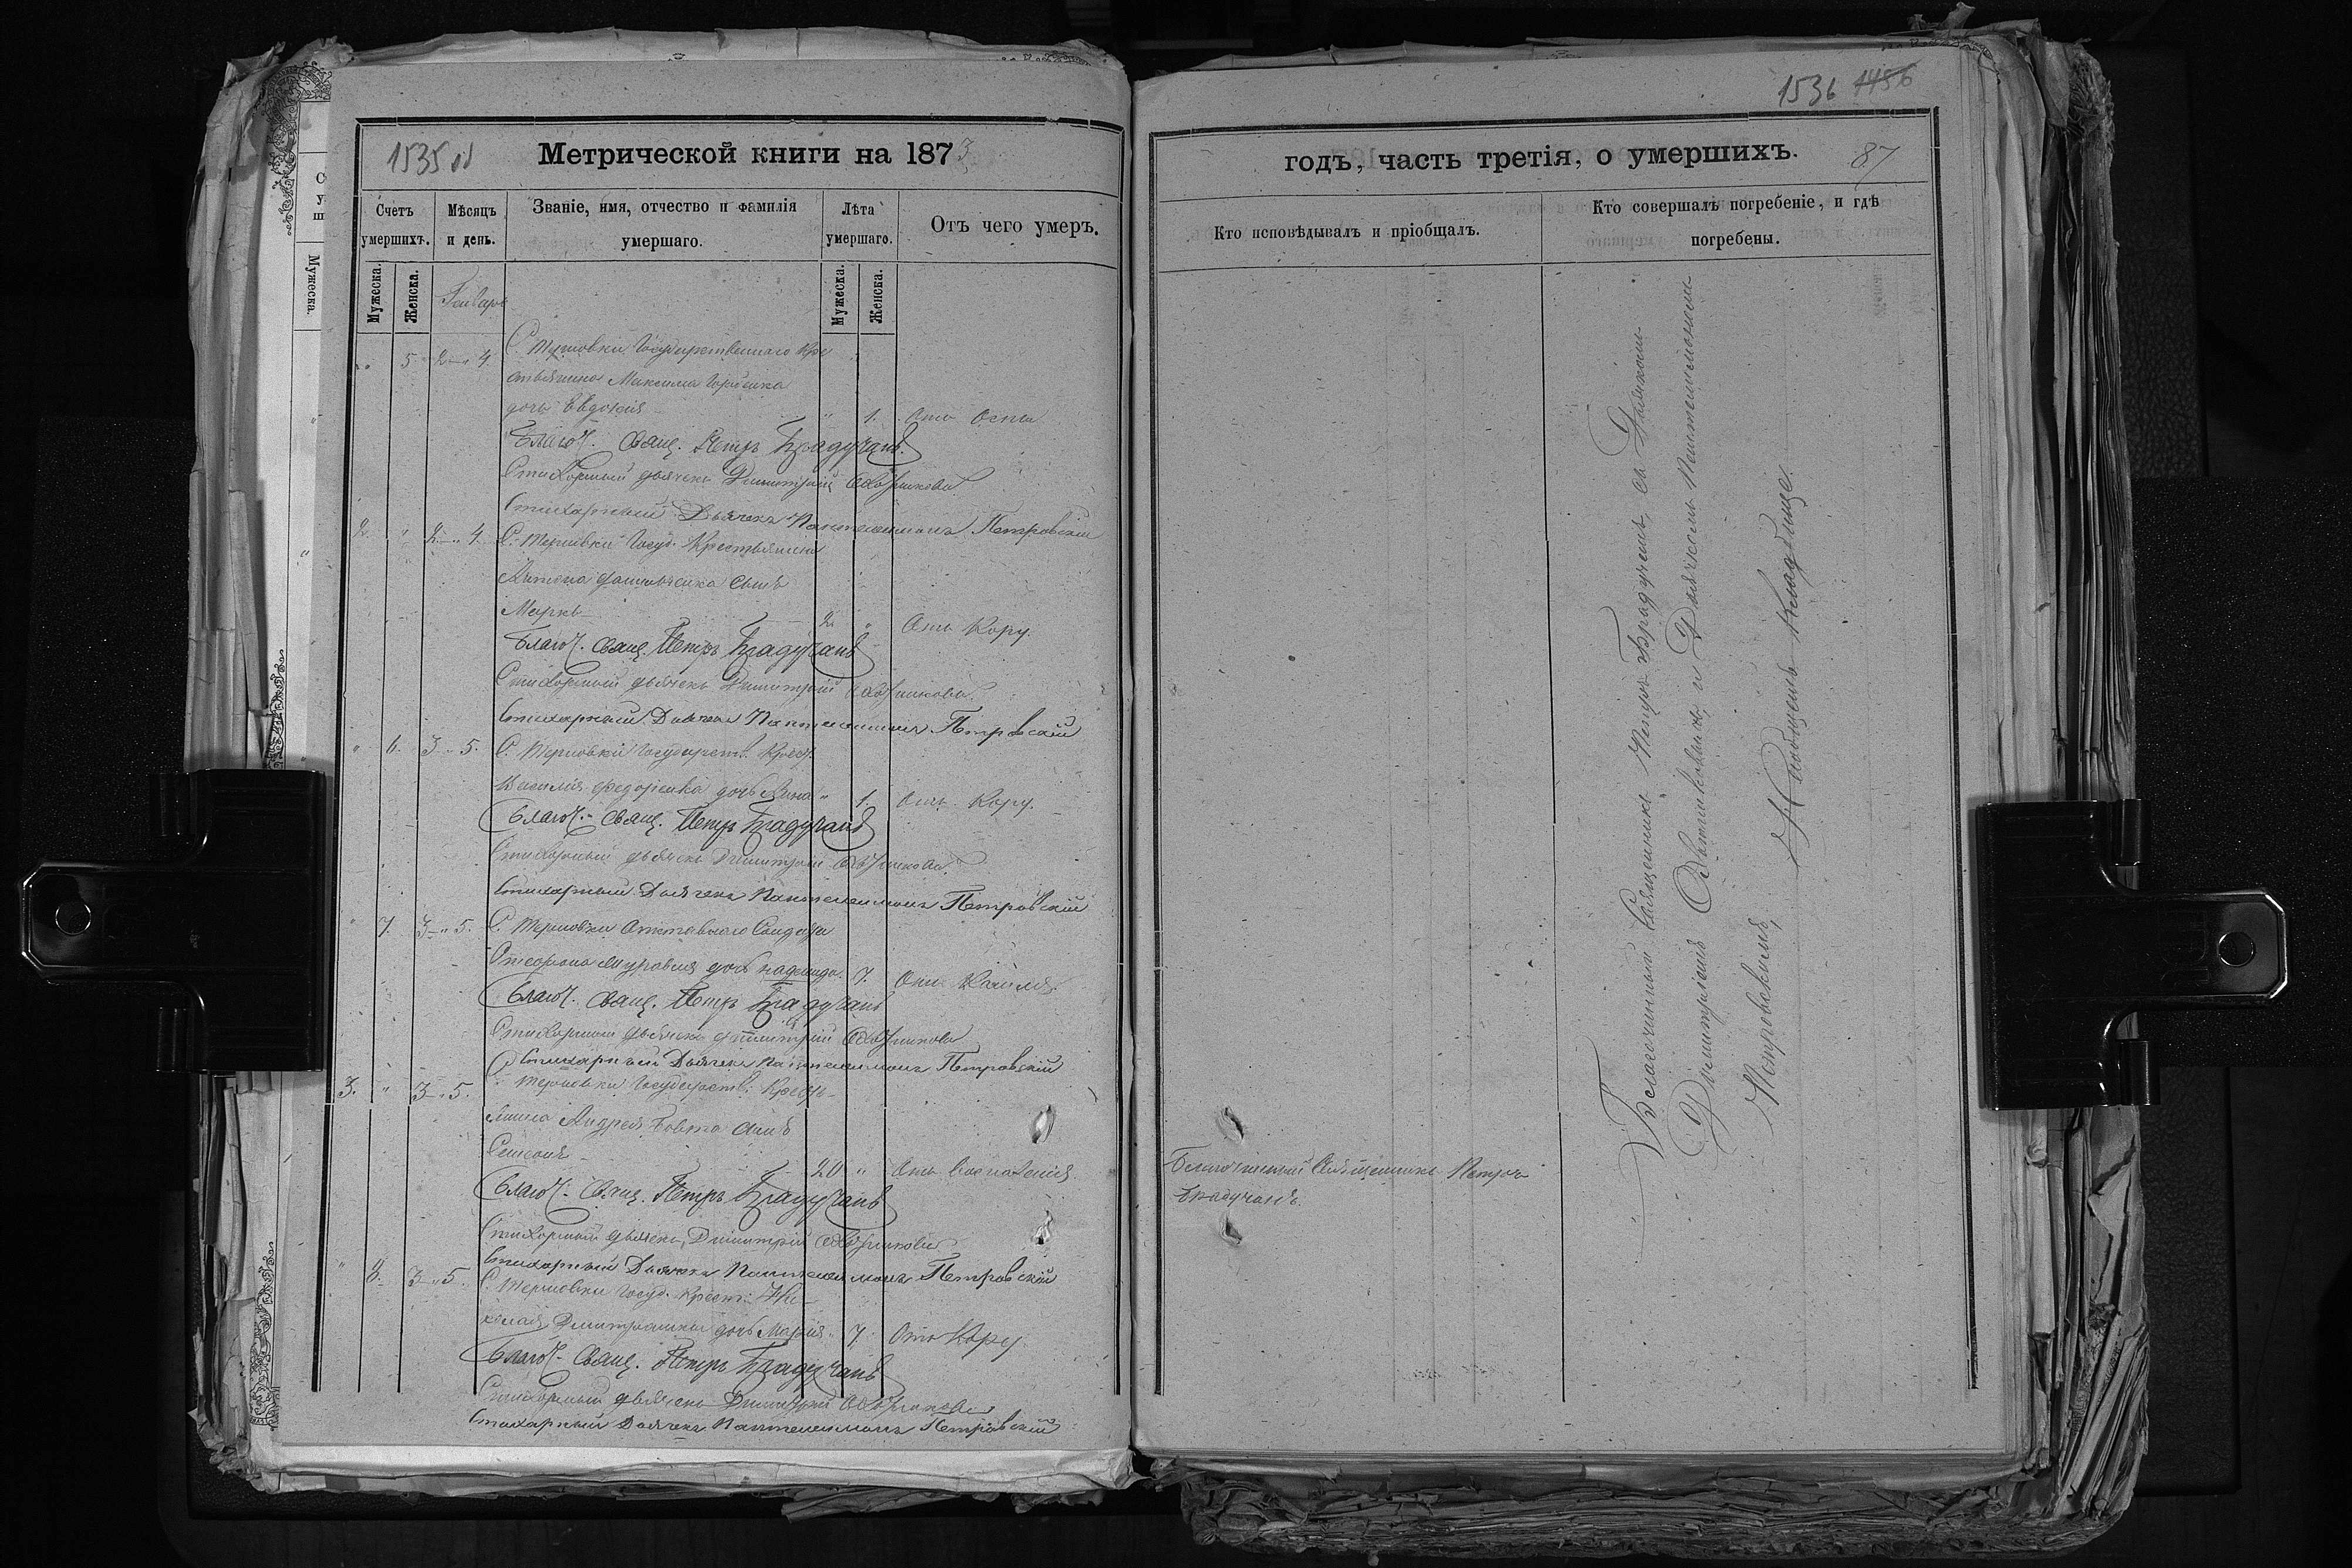 1535 об
Метрической книги на 1873
Счетъ умершихъ.
Мѣсяцъ и день.
Званіе, имя, отчество и фамилія умершаго.
Лѣта умершаго.
Отъ чего умеръ.
Мужеска.
Женска.
Январь
Мужеска.
Женска.
" 5. 2 " 4. С. Терновки Государственного Кре
стьянина Максима
дочь Евдокія " 1. Отъ Оспы
Благоч. Свящ. Петръ Брадучанъ.
Стихарный дьячекъ Димитрій
Стихарный Дьячекъ Пантелеимонъ Петровскій
2. " 2 " 4. С. Терновки Госуд. Крестьянина
Антона сынъ
Маркъ 2 " Отъ Кору.
Благоч. Свящ. Петръ Брадучанъ
Стихарный дьячекъ Димитрій
Стихарный Дьячекъ Пантелеимонъ Петровскій
" 6. 3 " 5. С. Терновки Государств. Крест.
Василія Федоренка дочь Анна " 1. Отъ Кору.
Благоч. Свящ. Петръ Брадучанъ
Стихарный дьячекъ Димитрій
Стихарный Дьячекъ Пантелеимонъ Петровскій
" 7. 3 " 5. С. Терновки Отставного Солдата
дочь Надежда. 7. Отъ Кашля.
Благоч. Свящ. Петръ Брадучанъ
Стихарный дьячекъ Димитрій
Стихарный Дьячекъ Пантелеимонъ Петровскій
3. " 3 " 5. С. Терновки Государств. Кресть-
янина Андрея Бовта сынъ
Симеонъ 20 " Отъ Воспаленія
Благоч. Свящ. Петръ Брадучанъ
Стихарный дьячекъ Димитрій
Стихарный Дьячекъ Пантелеимонъ Петровскій
" 8. 3 " 5. С. Терновки Госуд. Крест. Ни-
колая дочь Марія " 7. Отъ Кору
Благоч. Свящ. Петръ Брадучанъ
Стихарный дьячекъ Димитрій
Стихарный Дьячекъ Пантелеимонъ Петровскій
1536 1456
годъ, часть третія, о умершихъ.
87
Кто исповѣдывалъ и пріобщалъ.
Кто совершалъ погребеніе, и гдѣ погребены.
Благочинный Священникъ Петръ
Брадучанъ.
Благочинный Священникъ Петръ Брадучанъ, съ Дьячкомъ
Димитріемъ и Дьячкомъ Пантелеимономъ
Петровскимъ,
На общемъ кладбище.